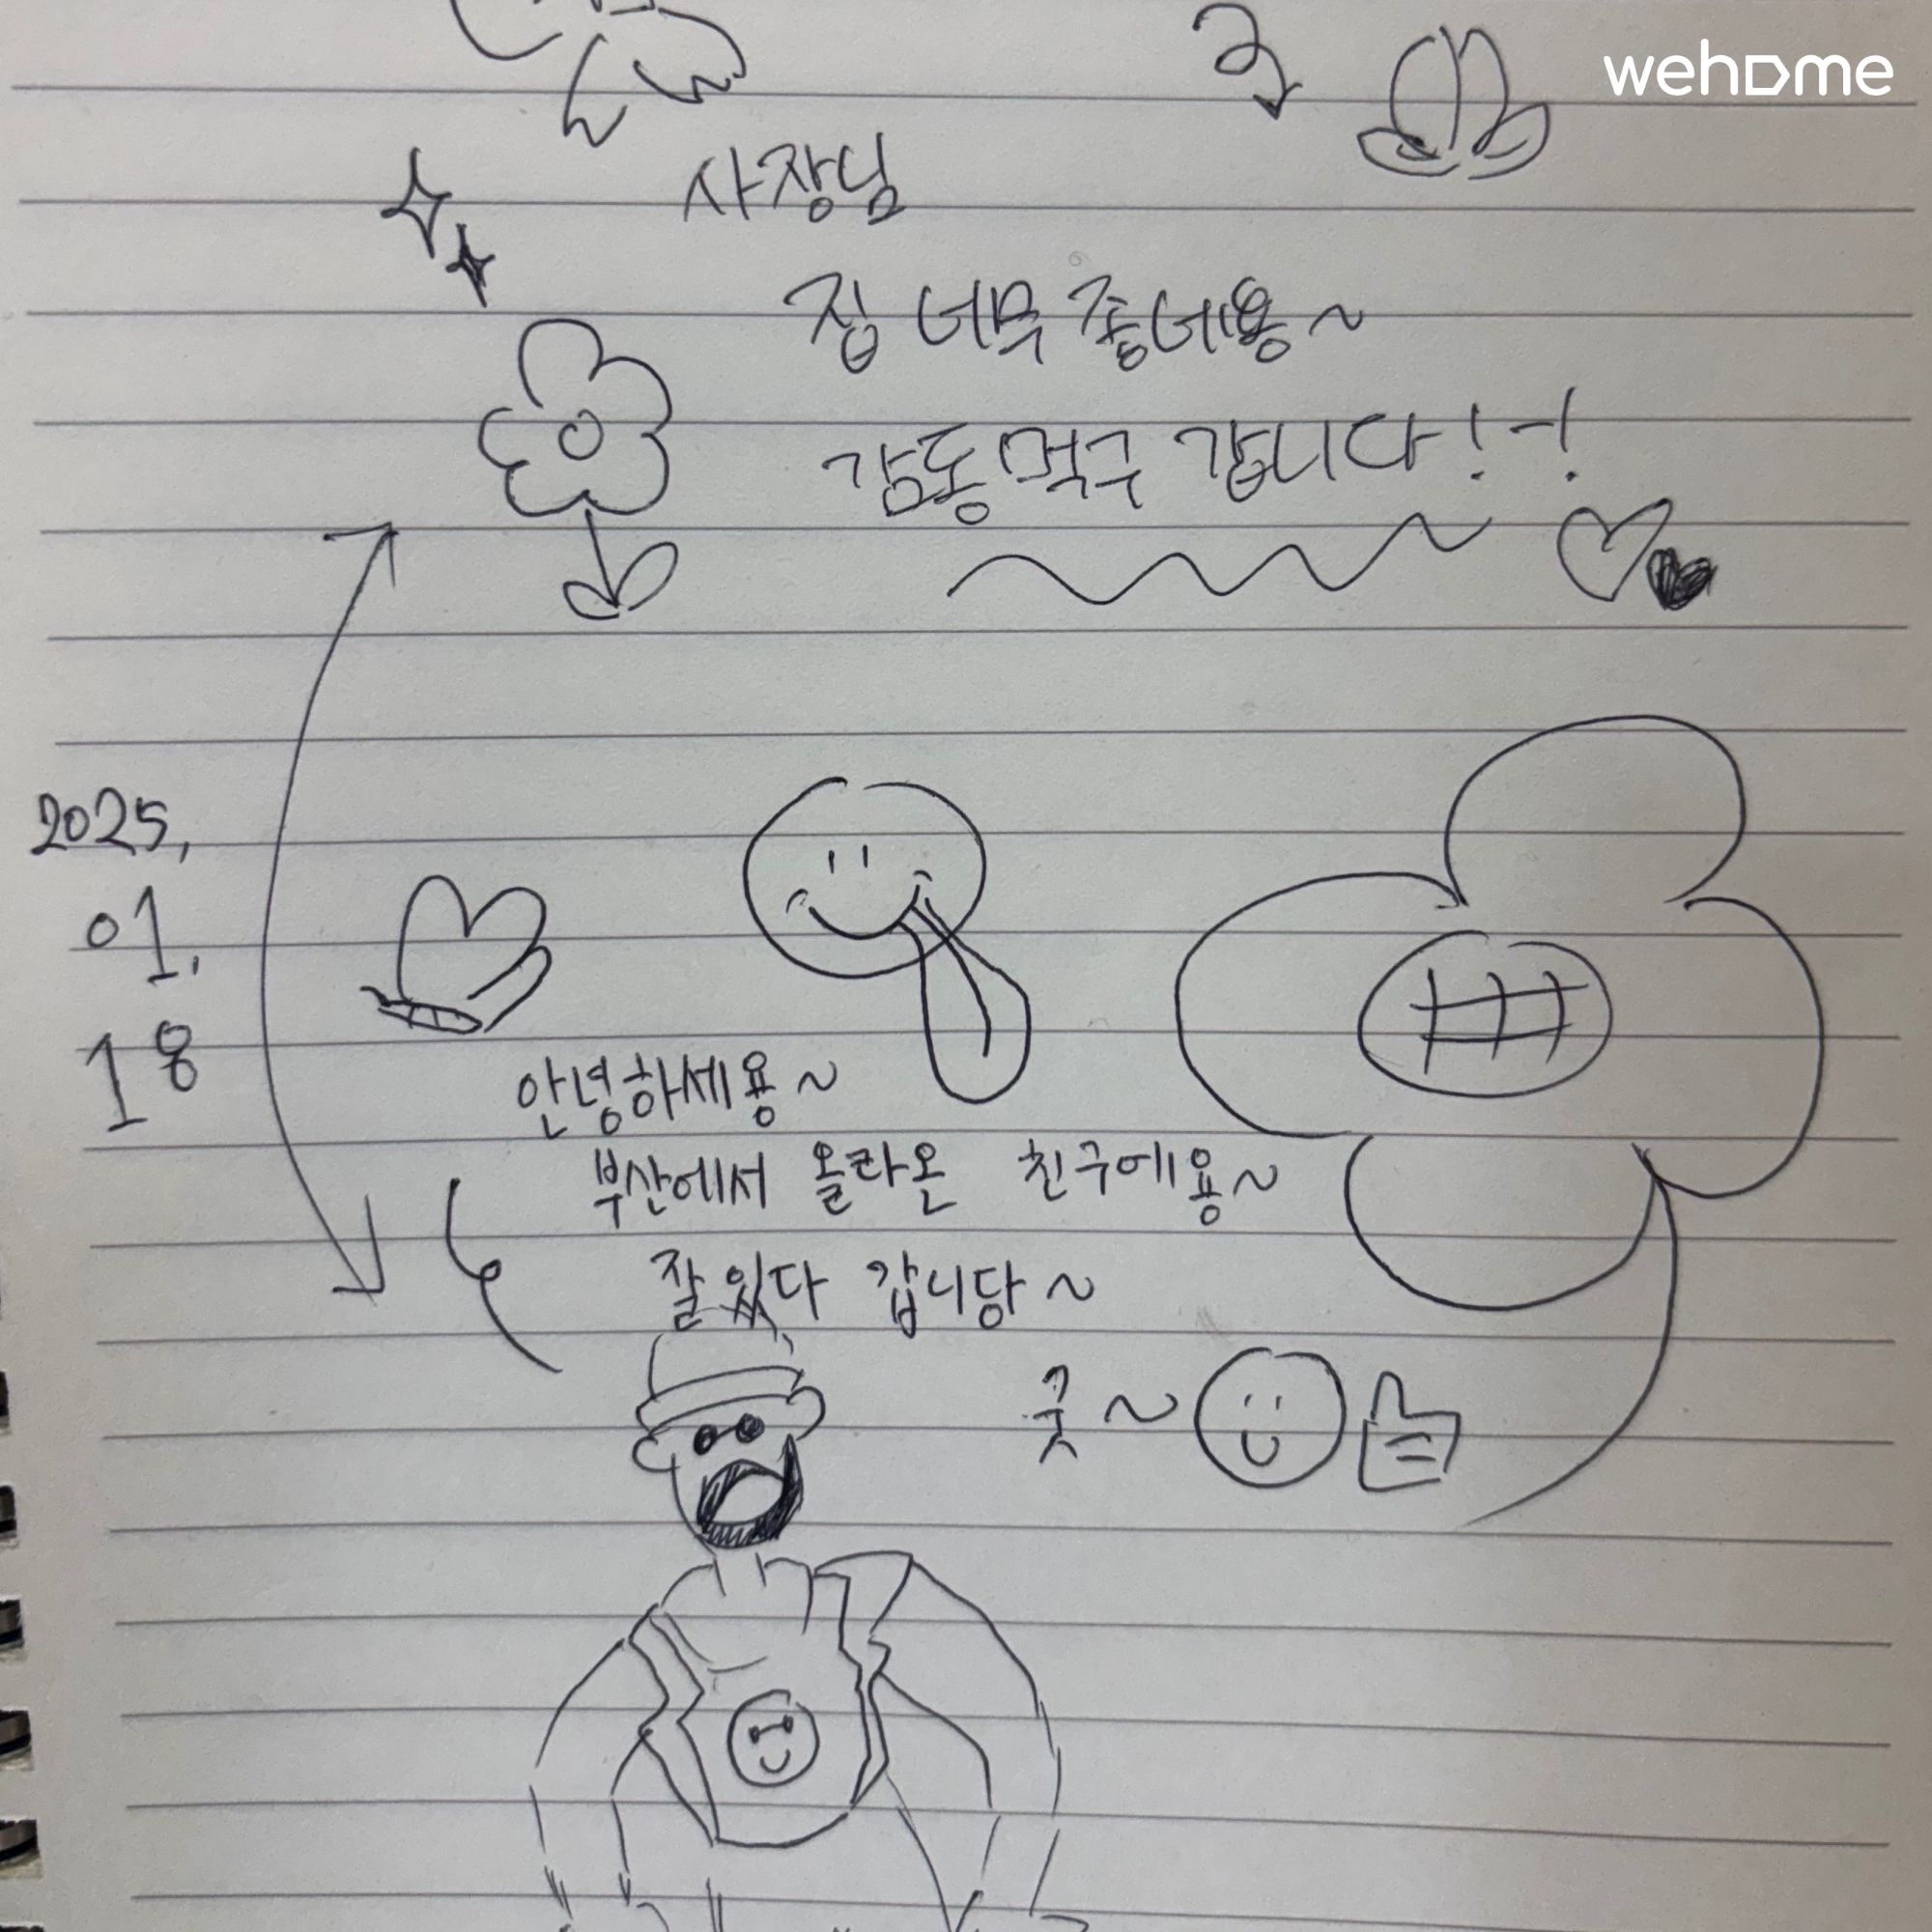 wehome
사장님
집 너무 좋네용~
감동먹구 갑니다!-!
2025,
01.
18
안녕하세용~
부산에서 올라온 친구에용~
잘있다 갑니당~
굿~